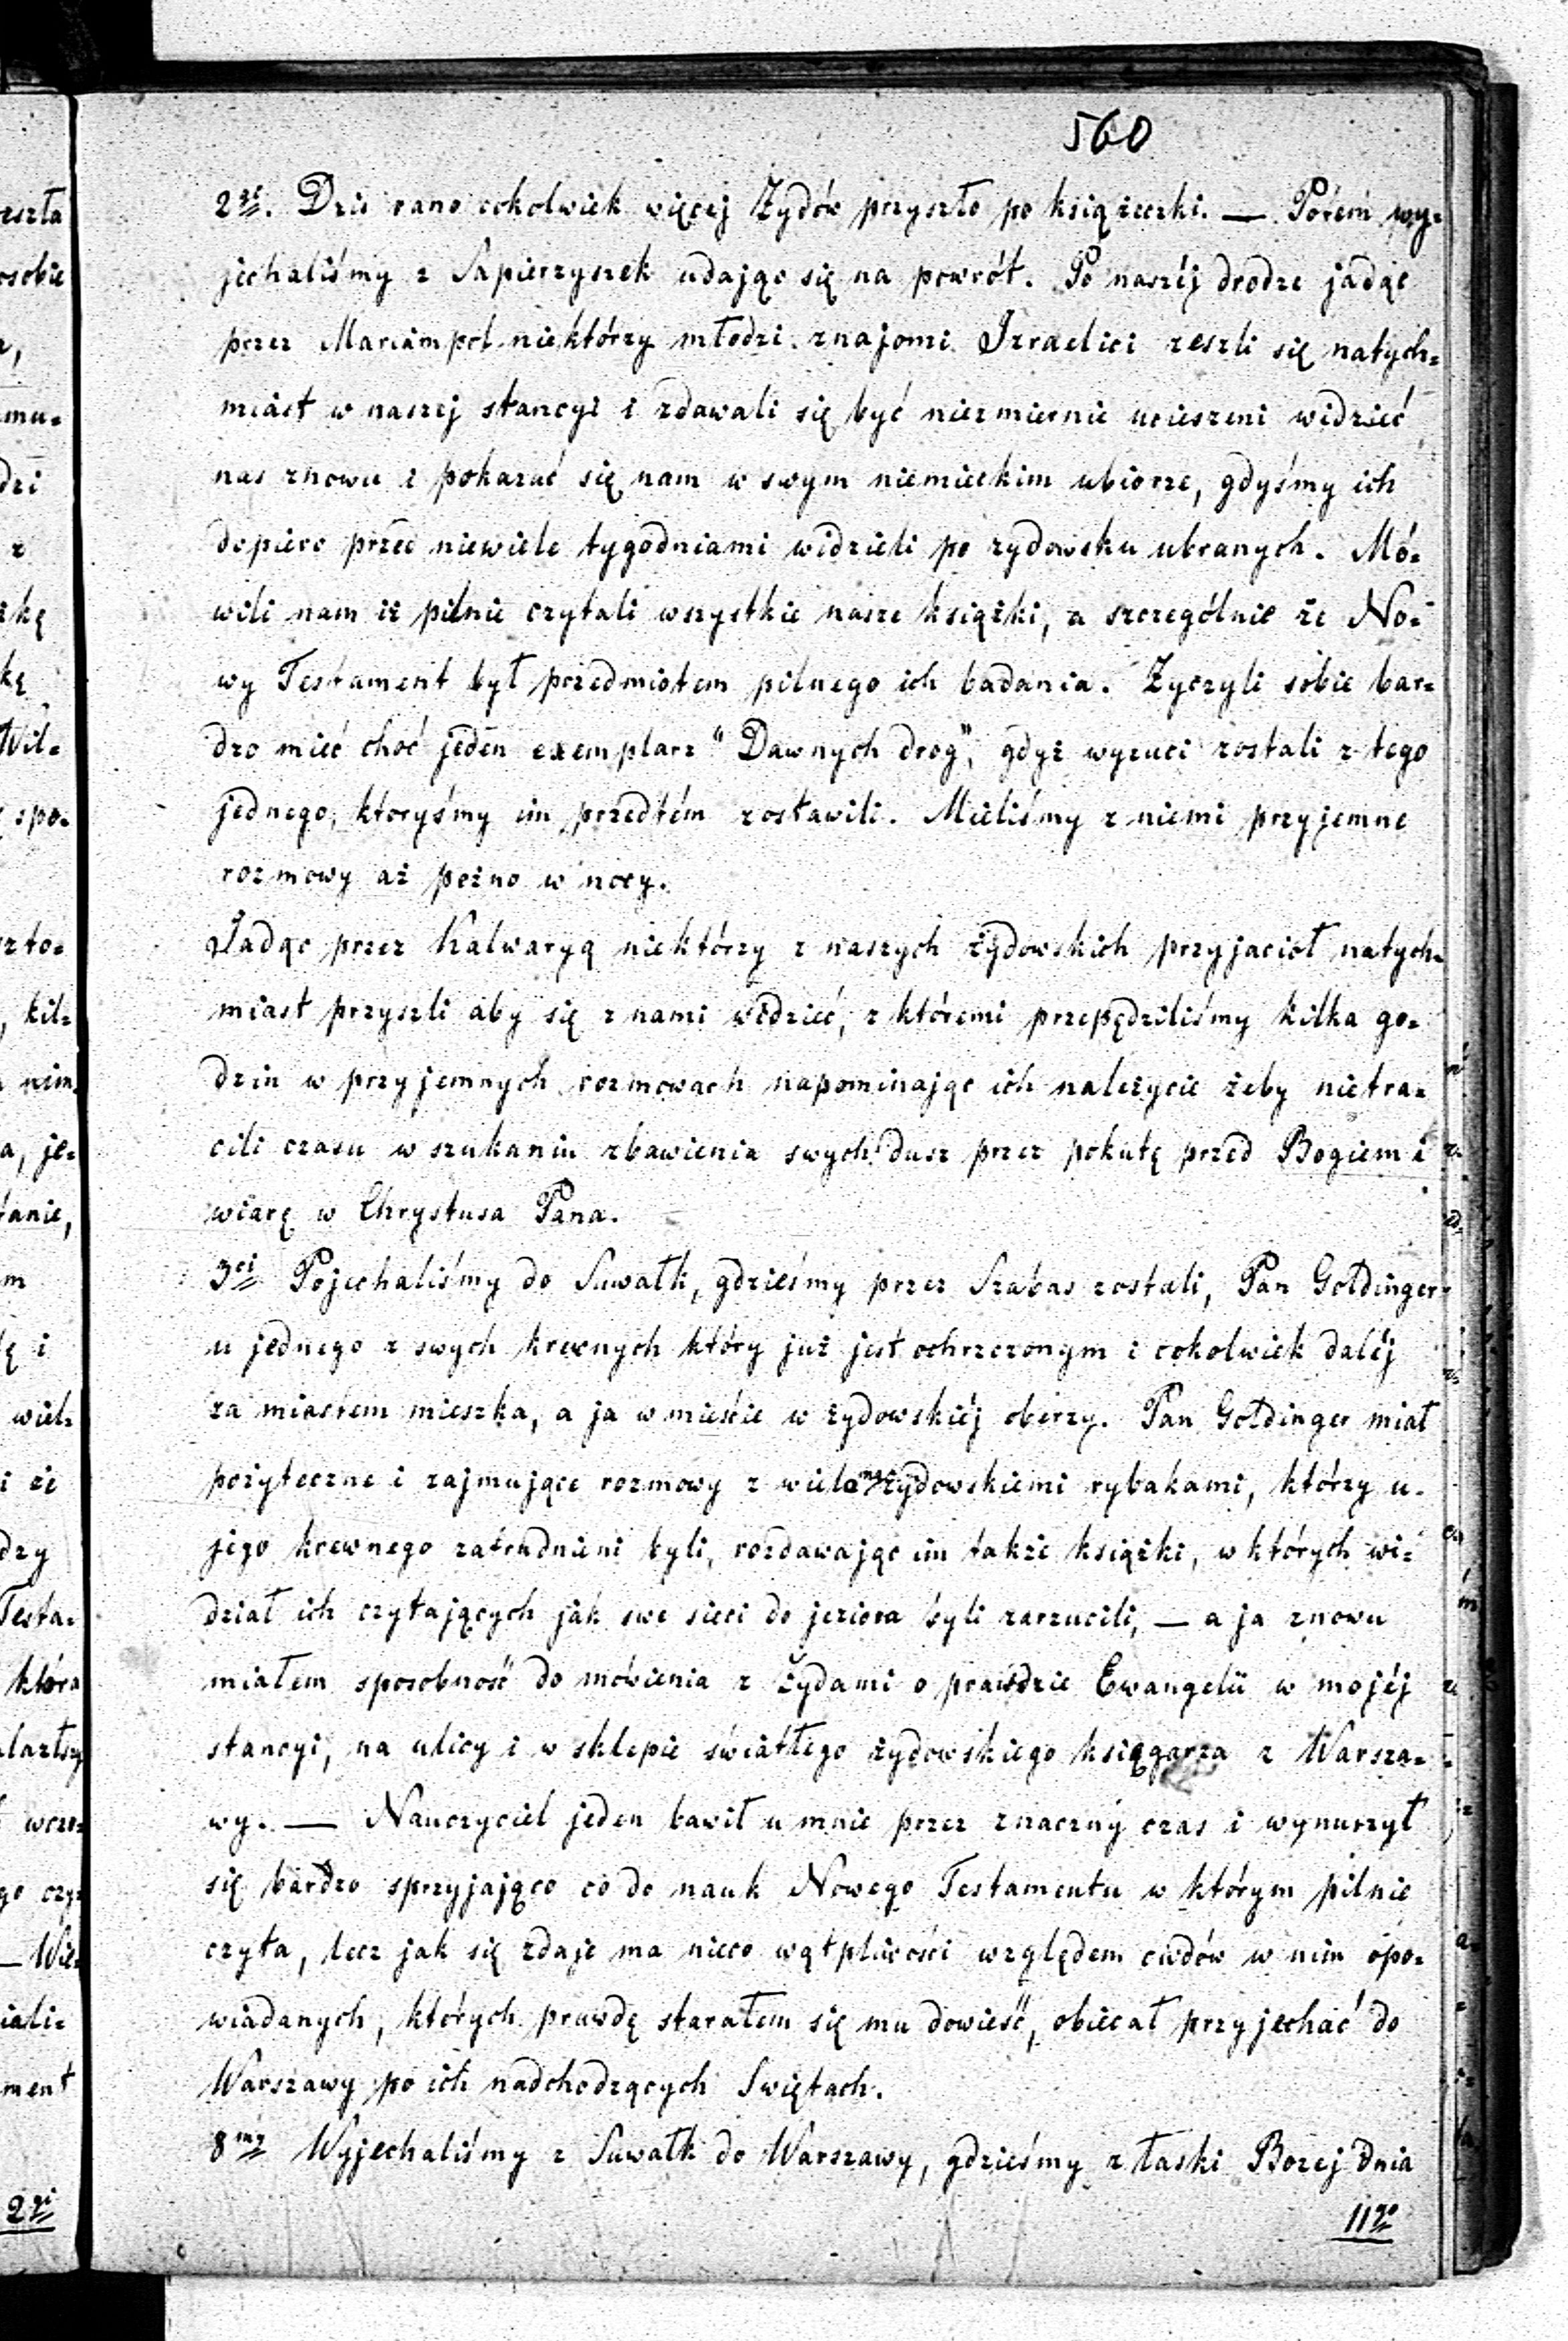 560
2gi. Dzis rano cokolwiek więcej Żydów przyszło po książeczki. — Potem wy=
jechaliśmy z Sapierzyszek udając się na powrót. Po naszéj drodze jadąc
przez Mariampol niektórzy młodzi znajomi Izraelici zeszli się natych=
miast w naszej stancyi i zdawali się być niezmiernie ucieszeni widzieć
nas znowu i pokazać się nam w swym niemieckim ubiorze, gdyśmy ich
dopiero przed niewiele tygodniami widzieli po zydowsku ubranych. Mó=
wili nam iż pilnie czytali wszystkie nasze książki, a szczególnie że No=
wy Testament był przedmiotem pilnego ich badania. Zyczyli sobie bar=
dzo mieć choć jeden exemplarz "Dawnych drog", gdyż wyzuci zostali z tego
jednego, ktoryśmy im przedtém zostawili. Mieliśmy z niemi przyjemne
rozmowy aż pozno w nocy.
Jadąc przez Kalwaryą niektórzy z naszych żydowskich przyjacioł natych=
miast przyszli aby się z nami widzieć, z któremi przepędziliśmy kilka go=
dzin w przyjemnych rozmowach napominając ich należycie żeby nietra=
cili czasu w szukaniu zbawienia swych dusz przez pokutę przed Bogiem i
wiarę w Chrystusa Pana.
3ci Pojechaliśmy do Suwałk, gdzieśmy przez Szabas zostali, Pan Goldinger
u jednego z swych krewnych który już jest ochrzczonym i cokolwiek daléj
za miastem mieszka, a ja w mieście w żydowskiéj oberzy. Pan Goldinger miał
pożyteczne i zajmujące rozmowy z wieloma żydowskiemi rybakami, którzy u=
jego krewnego zatrudnieni byli, rozdawając im także książki, w których wi=
dział ich czytających jak swe sieci do jeziora byli zarzucili, — a ja znowu
miałem sposobność do mówienia z Żydami o prawdzie Ewangelii w mojéj
stancyi, na ulicy i w sklepie światłego żydowskiego księgarza z Warsza=
wy. — Nauczyciel jeden bawił u mnie przez znaczny czas i wynurzył
się bardzo sprzyjająco co do nauk Nowego Testamentu w którym pilnie
czyta, lecz jak się zdaje ma nieco wątpliwości względem cudów w nim opo=
wiadanych, których prawdę starałem się mu dowieść, obiecał przyjechać do
Warszawy po ich nadchodzących Swiętach.
8my Wyjechaliśmy z Suwałk do Warszawy, gdzieśmy z łaski Bozej dnia
11go